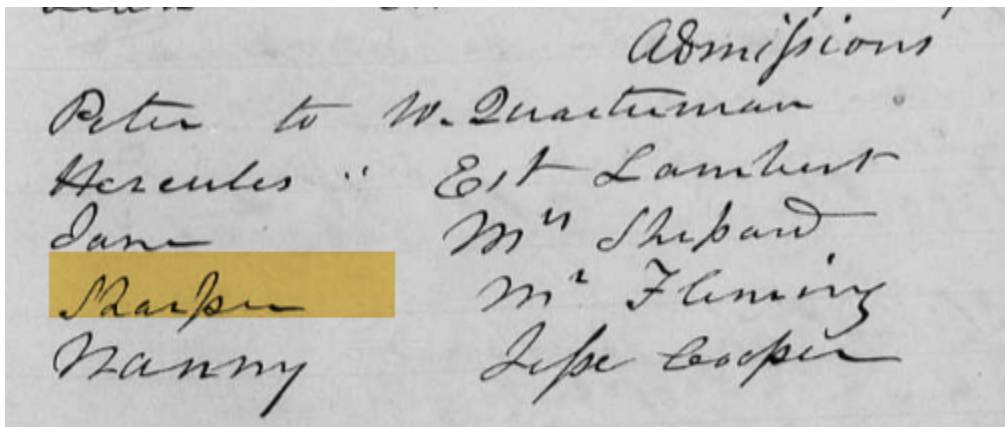 Admissions
Peter to W. Quarterman
Hercules " Est Lambert
Jane Mrs Shepard
Sharper Mr Fleming
Nanny Jesse Cooper